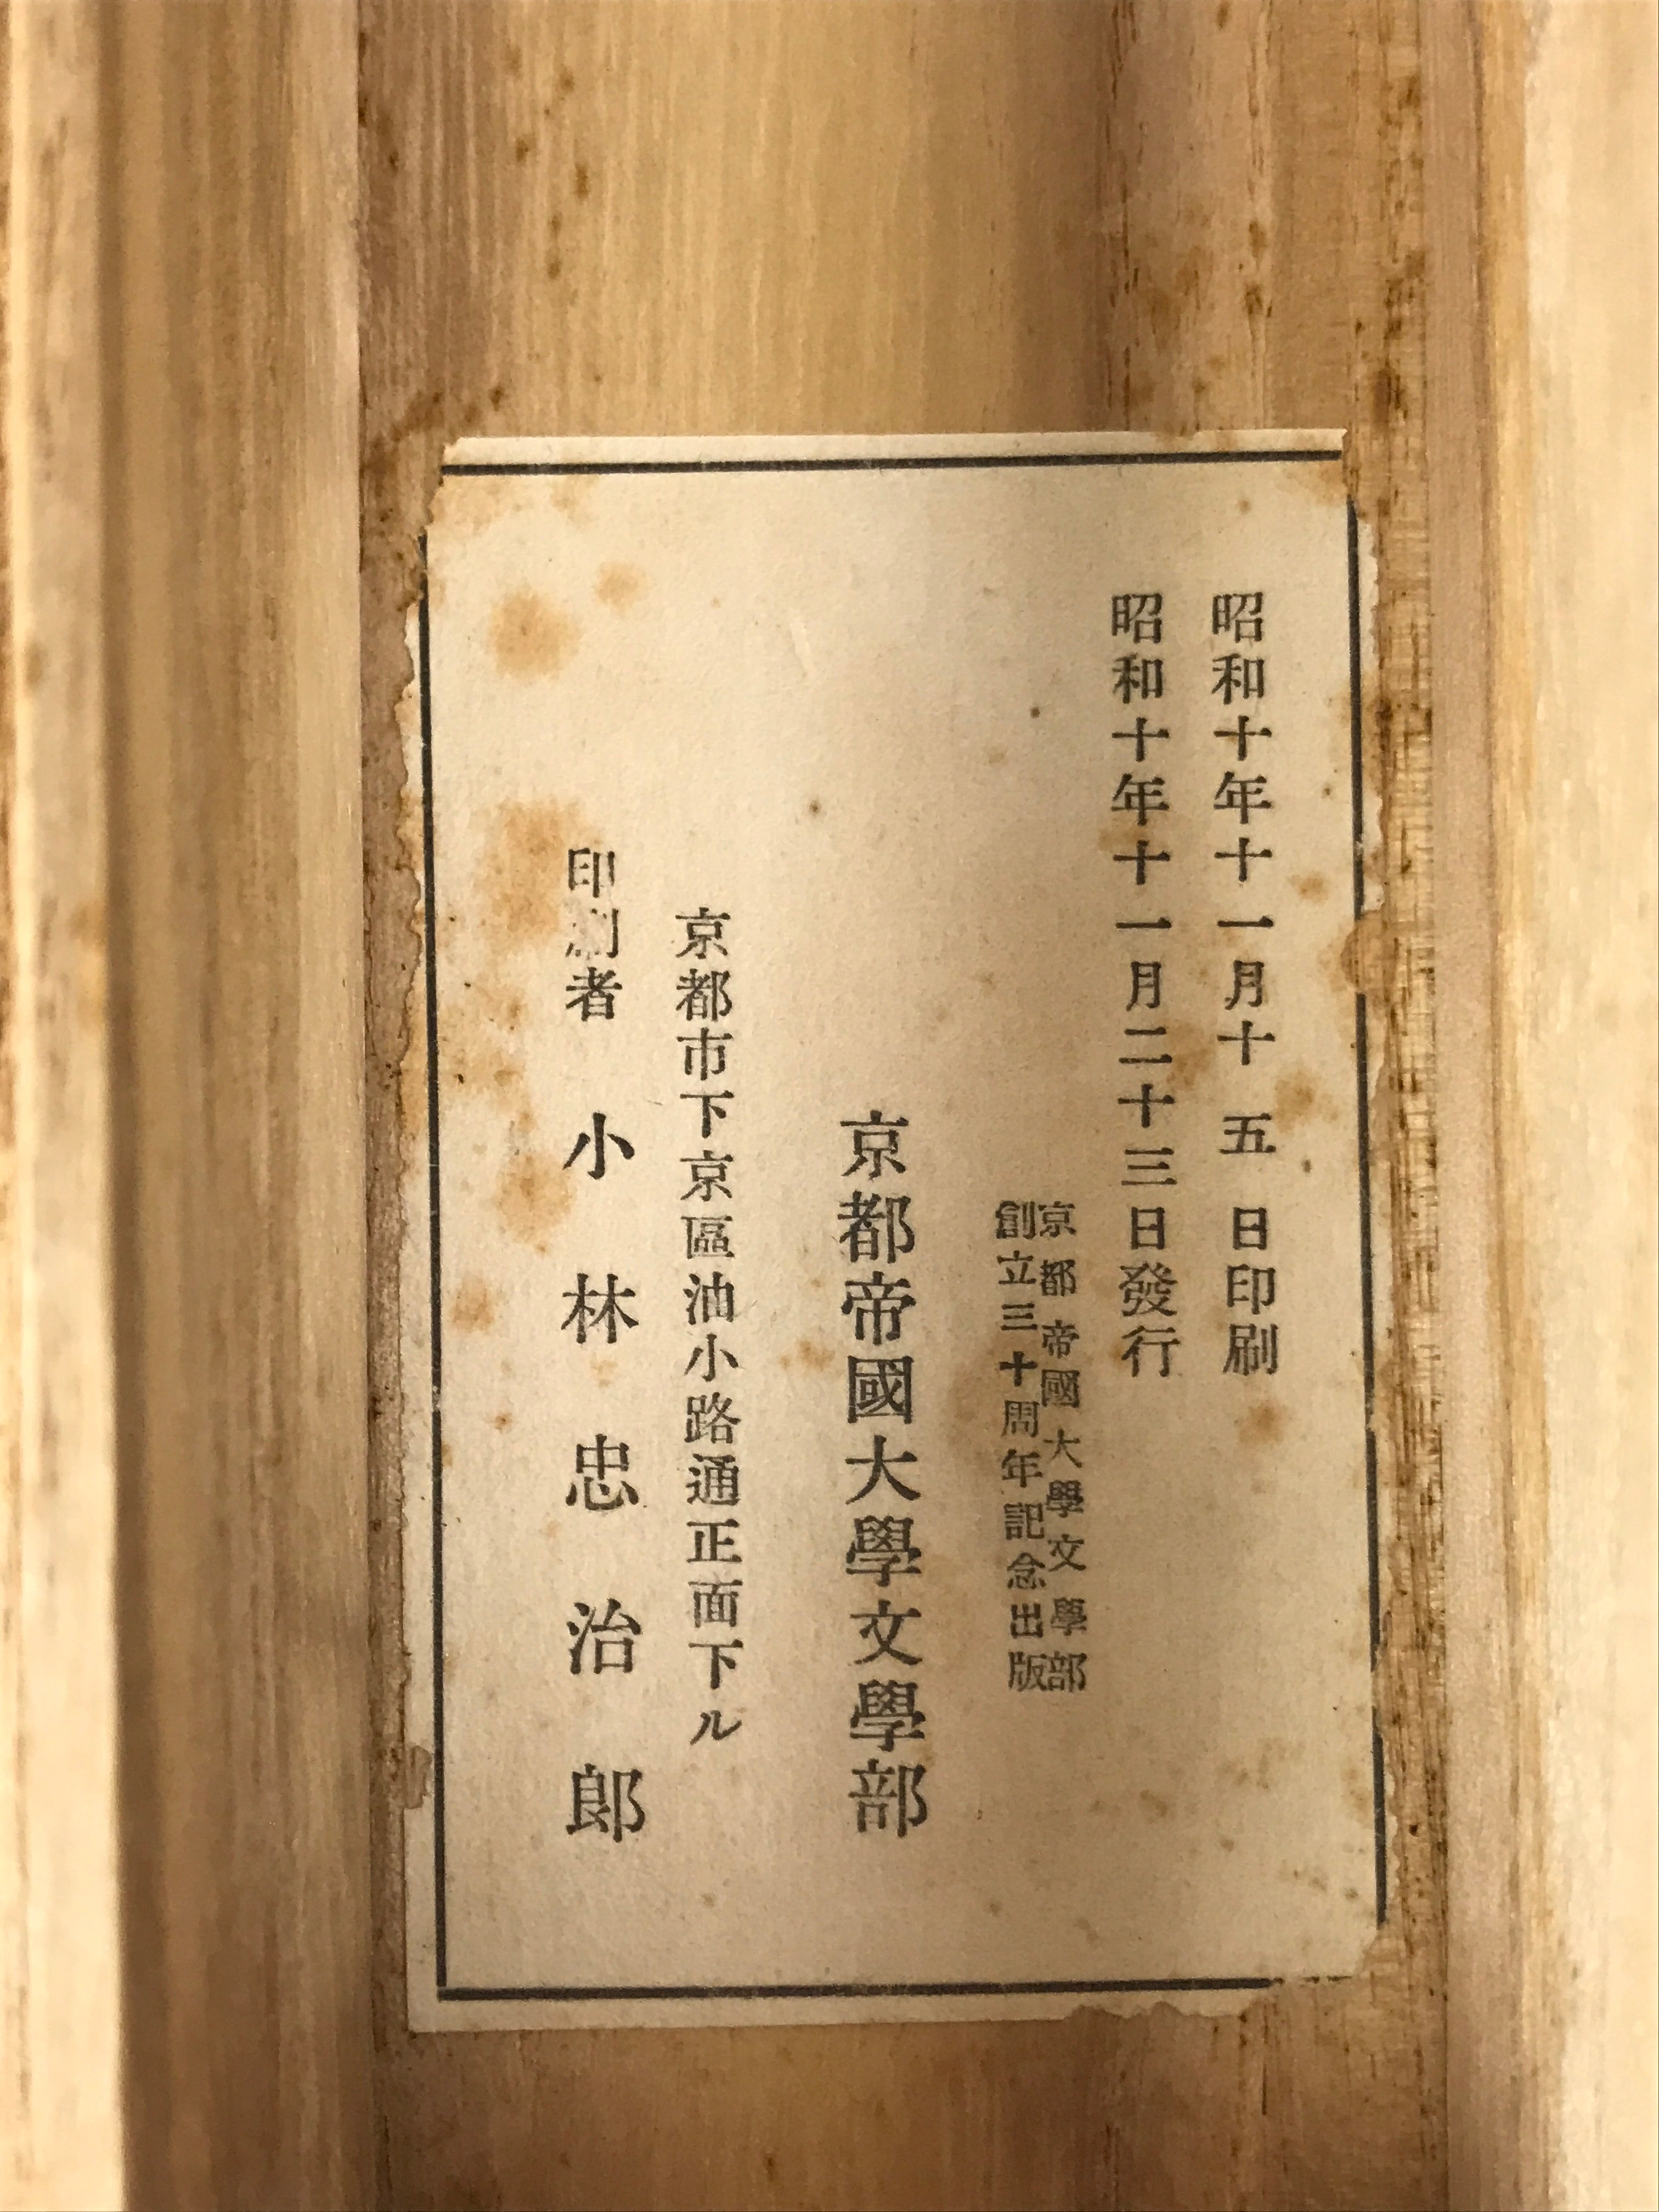 昭和十年十一月十五日印刷
昭和十年十一月二十三日發行
京都帝國大學文學部
創立三十周年記念出版
京都帝國大學文學部
京都市下京區油小路通正面下ル
印刷者 小林忠治郎